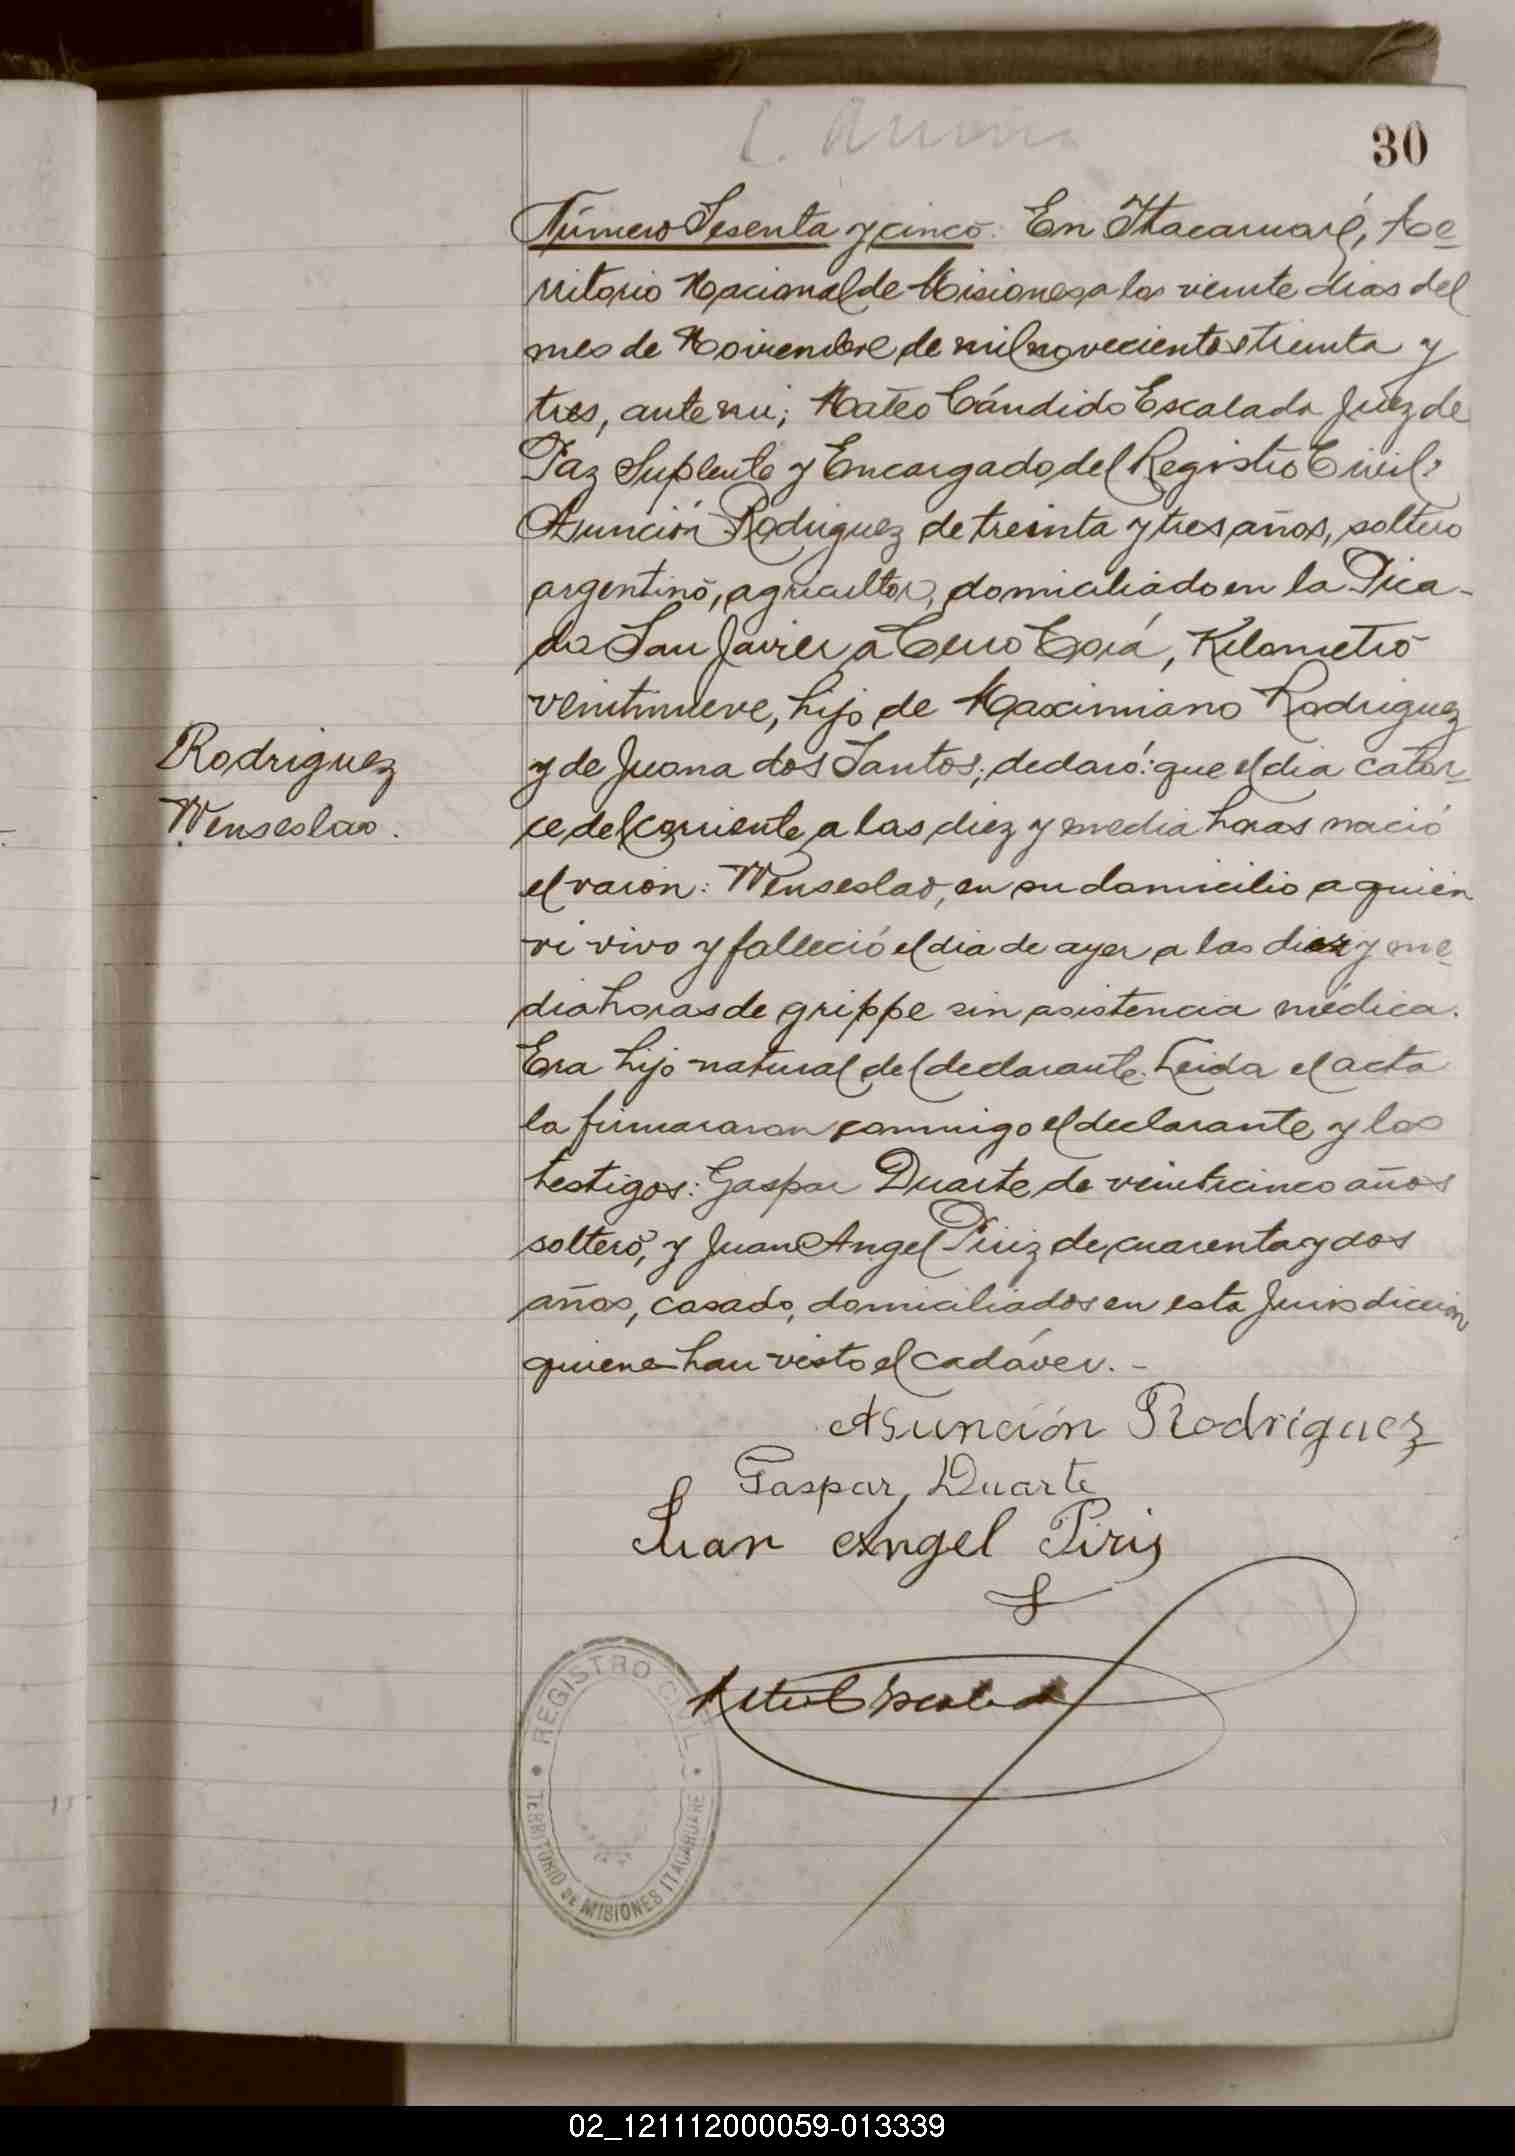 30
Número Sesenta y cinco: En Itacaruaré, Te-
rritorio Nacional de Misiones, a los veinte dias del
mes de Noviembre de mil novecientos treinta y
tres, ante mi; Mateo Cándido Escalada Juez de
Paz Suplente y Encargado del Registro Civil:
Asunción Rodriguez de treinta y tres años, soltero
argentino, agricultor, domiciliado en la Pica-
da San Javier a Cerro Corá, Kilometro
veintinueve, hijo de Maximiano Rodriguez
y de Juana dos Santos; declaró: que el dia cator-
ce del corriente a las diez y media horas nació
el varon: Wenseslao, en su domicilio a quien
vi vivo y falleció el dia de ayer a las diez y me-
dia horas de grippe sin asistencia médica.
Era hijo natural del declarante. Leida el acta
la firmararon conmigo el declarante y los
testigos: Gaspar Duarte de veinticinco años
soltero, y Juan Angel Piriz de cuarenta y dos
años, casado, domiciliados en esta Jurisdiccion
quiene han visto el cadáver. -
Rodriguez
Wenseslao.
Asunción Rodriguez
Gaspar Duarte
Juan Angel Piris
REGISTRO CIVIL
TERRITORIO DE MISIONES ITACARUARE
02_121112000059-013339